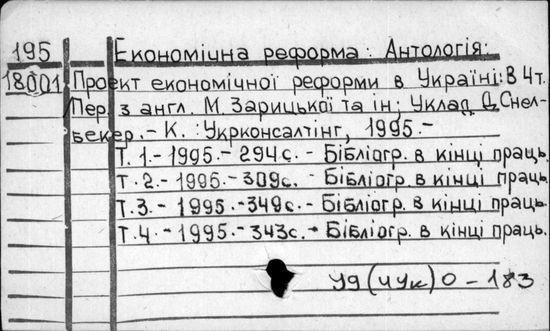 195 Економічна реформа: Антологія:
18001 Проект економічної реформи в Україні: В 4т.
Пер. з англ. М. Зарицької та ін; Уклад. Д. Снел-
бекер. - К. : Укрконсалтінг, 1995. -
Т. 1. - 1995. - 294с. - Бібліогр. в кінці праць.
Т. 2. - 1995. - 309с. - Бібліогр. в кінці праць.
Т. 3. - 1995. - 349с. - Бібліогр. в кінці праць.
Т. 4. - 1995. - 343с. - Бібліогр. в кінці праць.
У9(4Ук)0 - 183